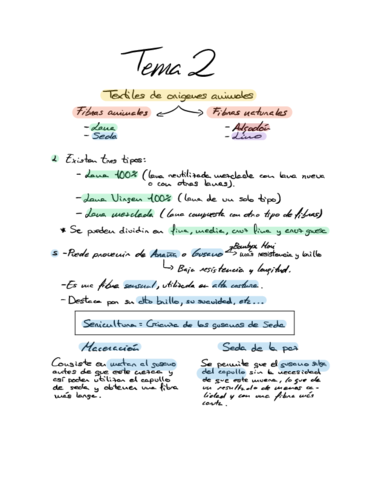 Tema 2
Textiles de origenes animales
Fibras animales
Fibras naturales
- Lana
- Algodón
- Seda
- Lino
Existen tres tipos:
- Lana 100% (lana reutilizada mezclada con lana nueva
o con otras lanas).
- Lana Virgen 100% (lana de un solo tipo)
- Lana mezclada (lana compuesta con otro tipo de fibras)
* Se pueden dividir en fina, media, cruz fina y cruz gruesa
- Puede provenir de Araña o Gusano
Bombyx Mori
resistencia y brillo
Baja resistencia y longitud.
- Es una fibra sensual, utilizada en alta costura.
- Destaca por su alto brillo, su suavidad, etc...
Sericultura = Crianza de los gusanos de Seda
Maceración
Consiste en matar al gusano
antes de que este crezca y
así poder utilizar el capullo
de seda y obtener una fibra
más larga.
Seda de la paz
Se permite que el gusano salga
del capullo sin la necesidad
de que este muera, lo que da
un resultado de menos ca-
lidad y con una fibra más
corta.